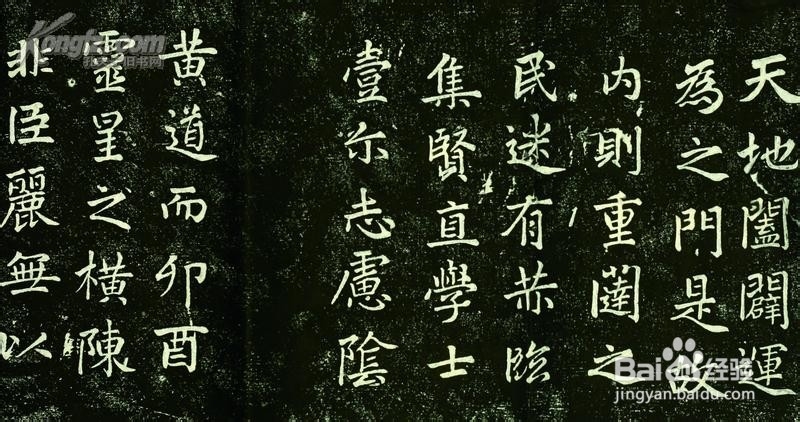 天地闔闢運
為之門是故
内則重蘭之
民迷有恭臨
集賢直學士
壹尓志慮陰
黄道而卯酉
靈星之橫陳
非臣麗無以
Kongfz.com
孔夫子旧书网
Baidu经验
jingyan.baidu.com